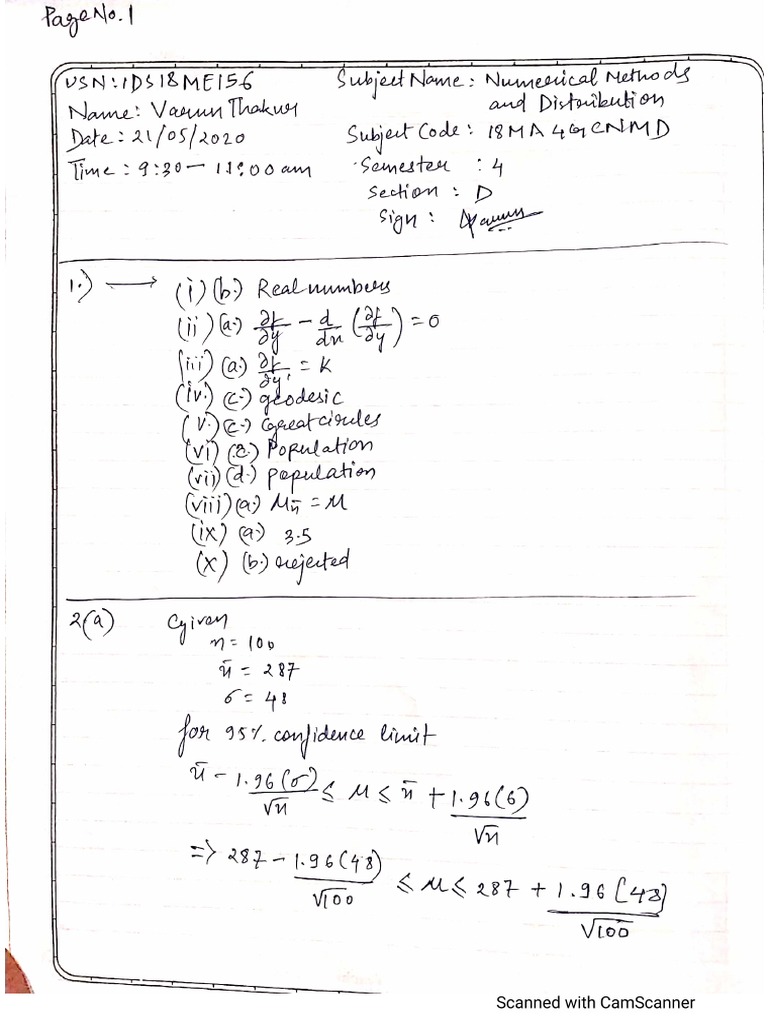 Page No. 1
USN: 1DS18ME156
Name: Varun Thakur
Date: 21/05/2020
Time: 9:30 - 11:00 am
Subject Name: Numerical Methods
and Distribution
Subject Code: 18MA4GCNMD
Semester : 4
Section : D
Sign: Varun
1.) → (i) (b.) Real numbers
(ii) (a.) ∂f/∂y - d/dx (∂f/∂y) = 0
(iii) (a.) ∂f/∂y' = K
(iv.) (c.) geodesic
(v.) (c.) Great circles
(vi) (a.) Population
(vii) (d.) population
(viii) (a.) μx̄ = μ
(ix) (a.) 3.5
(x) (b.) rejected
2(a) Given
n = 100
x̄ = 287
σ = 48
for 95% confidence limit
x̄ - 1.96(σ)/√n ≤ μ ≤ x̄ + 1.96(σ)/√n
=> 287 - 1.96(48)/√100 ≤ μ ≤ 287 + 1.96(48)/√100
Scanned with CamScanner